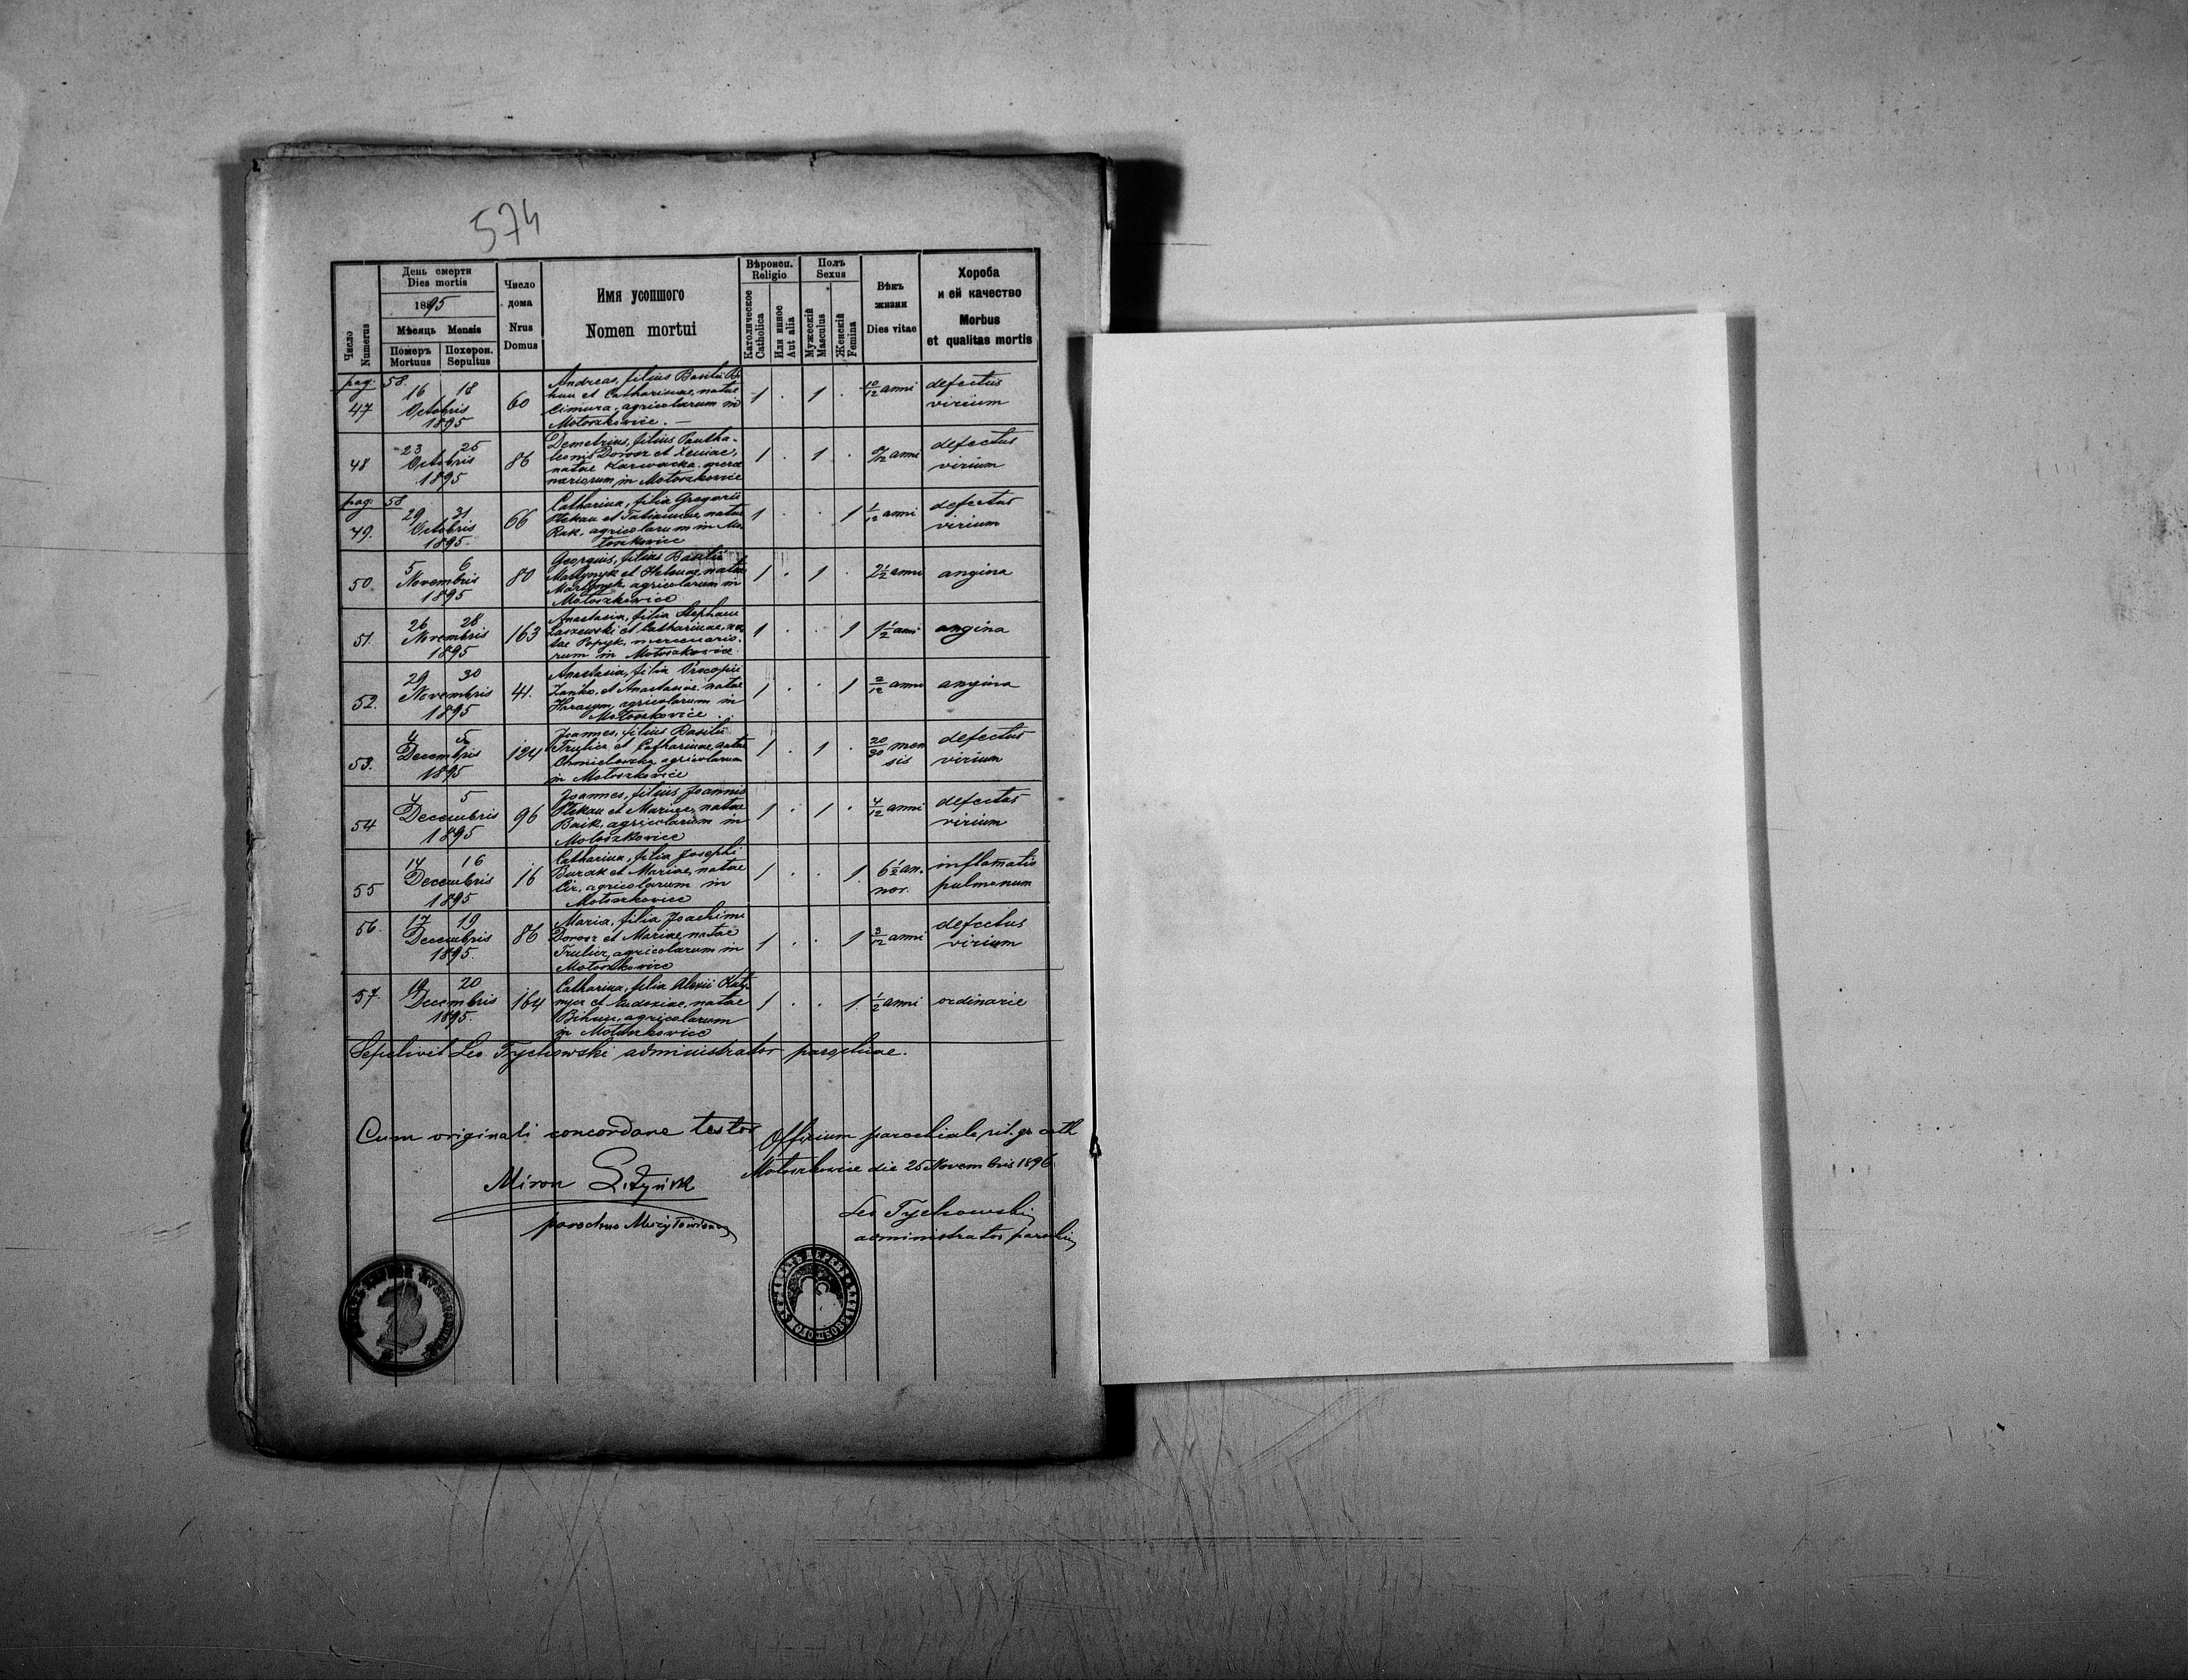 574
Число Numerus
День смерти
Dies mortis
1895
Мѣсяць Mensis
Померъ Похорон.
Mortuus Sepultus
Число дома
Nrus Domus
Имя усопшого
Nomen mortui
Вѣроисп.
Religio
Католическое Catholica
Или инное Aut alia
Полъ
Sexus
Мужескій Masculus
Женскій Femina
Вѣкъ жизни
Dies vitae
Хороба
и ей качество
Morbus
et qualitas mortis
pag: 58.
47 16 18 Octobris 1895 60
Andreas, filius Basilii
et Catharinae, natae
Cimura, agricolarum in
Motoszkowice. —
1 . 1 . 10/12 anni defectus virium
48 23 25 Octobris 1895 86
Demetrius, filius Pantha-
leonis Dorosz et Xeniae,
natae Karwacka merce
nariorum in Motoszkowice
1 . 1 . anni defectus virium
pag: 58
49. 29 31 Octobris 1895. 66
Catharina, filia Gregorii
et Tatiannae, natae
Rak, agricolarum in Mo
toszkowice
1 . . 1 1/12 anni defectus virium
50. 5 6 Novembris 1895 80
Georgius, filius Basilii
Martynyk et Helenae, natae
Martynyk agricolarum in
Motoszkowice
1 . 1 . 2 1/2 anni angina
51. 26 28 Novembris 1895 163
Anastasia, filia Stephani
Laszewski et Catharinae, na
tae Popyk, mercenario-
rum in Motoszkowice
1 . . 1 1 1/2 anni angina
52. 29 30 Novembris 1895 41.
Anastasia, filia Procopii
et Anastasiae, natae
Harasym, agricolarum in
Motoszkowice
1 . . 1 2/12 anni angina
53. 4 5 Decembris 1895 124
Joannes, filius Basilii
Trulicz et Catharinae natae
agricolarum
in Motoszkowice
1 . 1 . 20/30 men sis defectus virium
54 4 5 Decembris 1895 96
Joannes, filius Joannis
et Mariae, natae
Baik, agricolarum in
Motoszkowice
1 . 1 . 4/12 anni defectus virium
55 14 16 Decembris 1895 16
Catharina, filia Josephi
Burak et Mariae, natae
Cir, agricolarum in
Motoszkowice
1 . . 1. 6 1/2 an. nor. inflamatio pulmonum
56. 17 19 Decembris 1895. 86
Maria, filia Joachimi
Dorosz et Mariae, natae
Trulicz, agricolarum in
Motoszkowice
1 . . 1 3/12 anni defectus virium
57. 19 20 Decembris 1895. 164
Catharina, filia Alexii
et Eudoxiae, natae
Bihun, agricolarum
in Motoszkowice
1 . . 1. 1/2 anni ordinarie
Sepelivit Leo Tychowski administrator parochiae.
Cum originali concordare testor
Miron
parochus
Officium parochiale rit. gr. cath
Motoszkowice die 25 Novembris 1896
Leo Tychowski
administrator parochiae